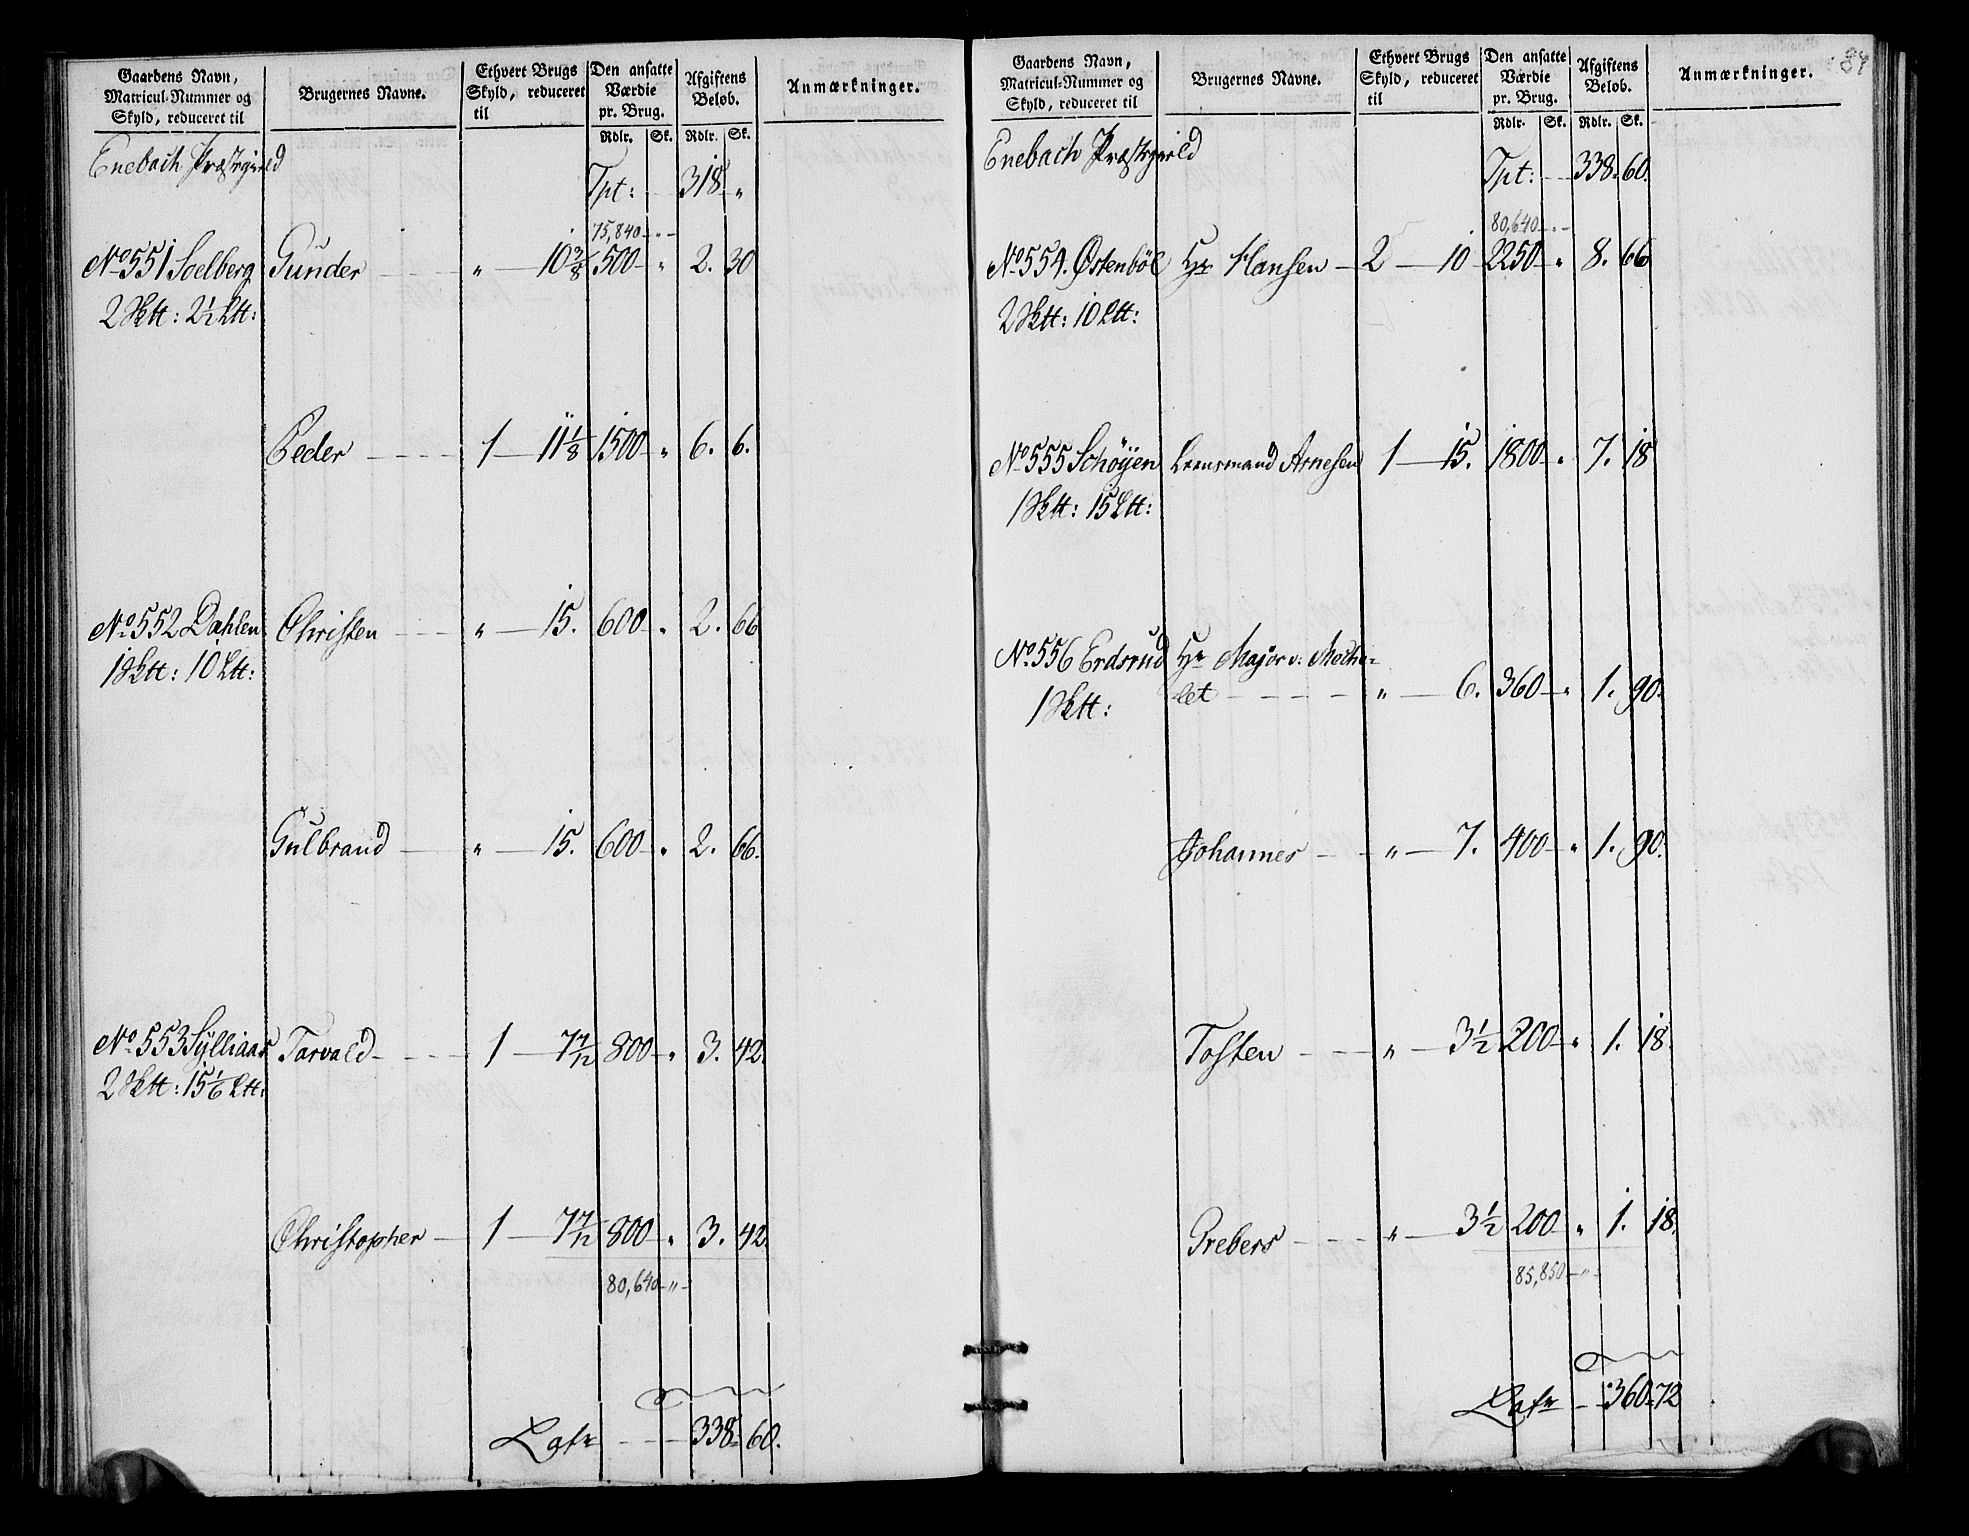 Gaardens Navn, Matricul-Nummer og Skyld, reduceret til
Brugernes Navne.
Ethvert Brugs Skyld, reduceret til
Den ansatte Værdie pr. Brug.
Afgiftens Beløb.
Anmærkninger.
Rdlr. Sk. Rdlr. Sk.
Enebach Præstegield
Tpt: 318 "
75,840 - " -
No 551 Soelberg Gunder " 10 3/8 500 " 2. 30
2 Sktt: 2 1/2 Ltt:
Peder 1 11 1/8 1500 " 6. 6.
No 552 Dahlen Christen " 15. 600 " 2. 66
1 Sktt: 10 Ltt:
Gulbrand " 15. 600 " 2. 66.
No 553 Sylliaas Tarvald 1 7 7/12 800 " 3. 42.
2 Sktt: 15 1/6 Ltt:
Christopher 1 7 7/12 800 " 3. 42.
80,640 - " -
Latr 338 60.
84
Gaardens Navn, Matricul-Nummer og Skyld, reduceret til
Brugernes Navne.
Ethvert Brugs Skyld, reduceret til
Den ansatte Værdie pr. Brug.
Afgiftens Beløb.
Anmærkninger.
Rdlr. Sk. Rdlr. Sk.
Enebach Præstegield
Tpt: 338 60.
80,640 - " -
No 554. Østenböl Hr Hansen 2 10 2250 " 8. 66
2 Sktt: 10 Ltt:
No 555 Schøyen Lensmand Arnesen 1 15. 1800 " 7. 18
1 Sktt: 15 Ltt:
No 556 Erdsrud Hr Major v: Miche-
1 Sktt: let " 6. 360 " 1. 90.
Johannes " 7. 400 " 1. 90.
Tosten " 3 1/2 200 " 1. 18.
Grebers " 3 1/2 200 " 1. 18.
85,850 - " -
Latr 360 72